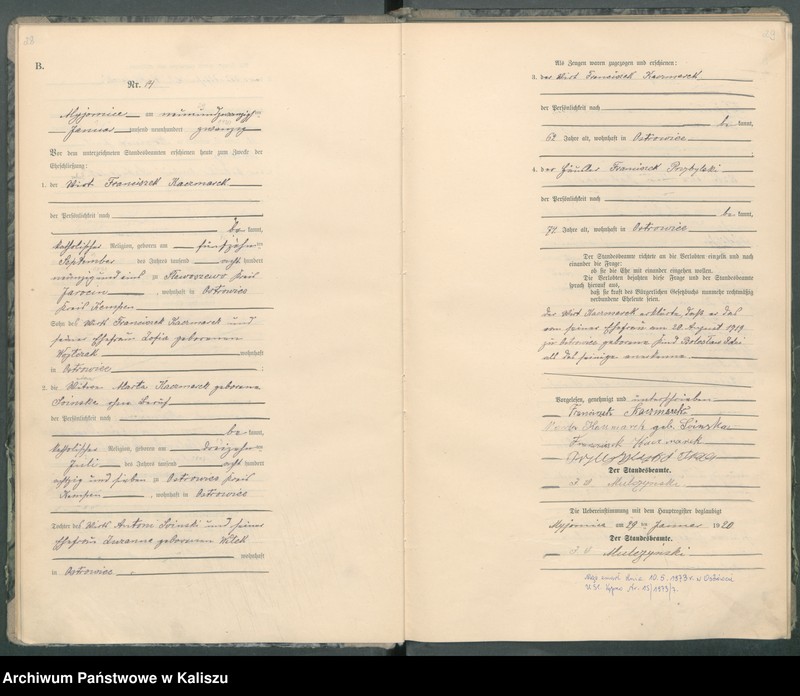 B.
Nr. 14
Myjomice am neunundzwanzigsten
Januar tausend neunhundert zwanzig
Vor dem unterzeichneten Standesbeamten erschienen heute zum Zwecke der
Eheschließung:
1. der Wirt Franciszek Kaczmarek
der Persönlichkeit nach
be kannt,
katholischer Religion, geboren am fünfzehnten
September des Jahres tausend acht hundert
neunzig und eins zu Kreis
Jarocin, wohnhaft in Ostrowiec
Kreis Kempen
Sohn des Wirts Franciszek Kaczmarek und
seiner Ehefrau Zofia geborenen
Wojtczak wohnhaft
in Ostrowiec
2. die Witwe Marta Kaczmarek geborene
Soinska ohne Beruf
der Persönlichkeit nach
be kannt,
katholischer Religion, geboren am dreizehnten
Juli des Jahres tausend acht hundert
achtzig und sieben zu Ostrowiec Kreis
Kempen, wohnhaft in Ostrowiec
Tochter des Wirts Antoni Soinski und seiner
Ehefrau Zuzanna geborenen Witek
wohnhaft
in Ostrowiec
Als Zeugen waren zugezogen und erschienen:
3. der Wirt Franciszek Kaczmarek
der Persönlichkeit nach
be kannt,
62 Jahre alt, wohnhaft in Ostrowiec
4. der Franciszek Przybylski
der Persönlichkeit nach
be kannt,
72 Jahre alt, wohnhaft in Ostrowiec
Der Standesbeamte richtete an die Verlobten einzeln und nach
einander die Frage:
ob sie die Ehe mit einander eingehen wollen.
Die Verlobten bejahten diese Frage und der Standesbeamte
sprach hierauf aus,
daß sie kraft des Bürgerlichen Gesetzbuchs nunmehr rechtmäßig
verbundene Eheleute seien.
Der Wirt Kaczmarek erklärte, daß er das
von seiner Ehefrau am 20. August 1919
zu Ostrowiec geborene Kind Boleslaus
als das seinige anerkenne
Vorgelesen, genehmigt und unterschrieben
Franciszek Kaczmarek
Kaczmarek geb. Soinska
Franciszek Kaczmarek
Der Standesbeamte.
I. V. Mulczyński
Die Uebereinstimmung mit dem Hauptregister beglaubigt
Myjomice am 29ten Januar 1920
Der Standesbeamte.
I. V. Mulczyński
dnia 10. 5. 1973 r. w
Nr. 15/1973/
Archiwum Państwowe w Kaliszu